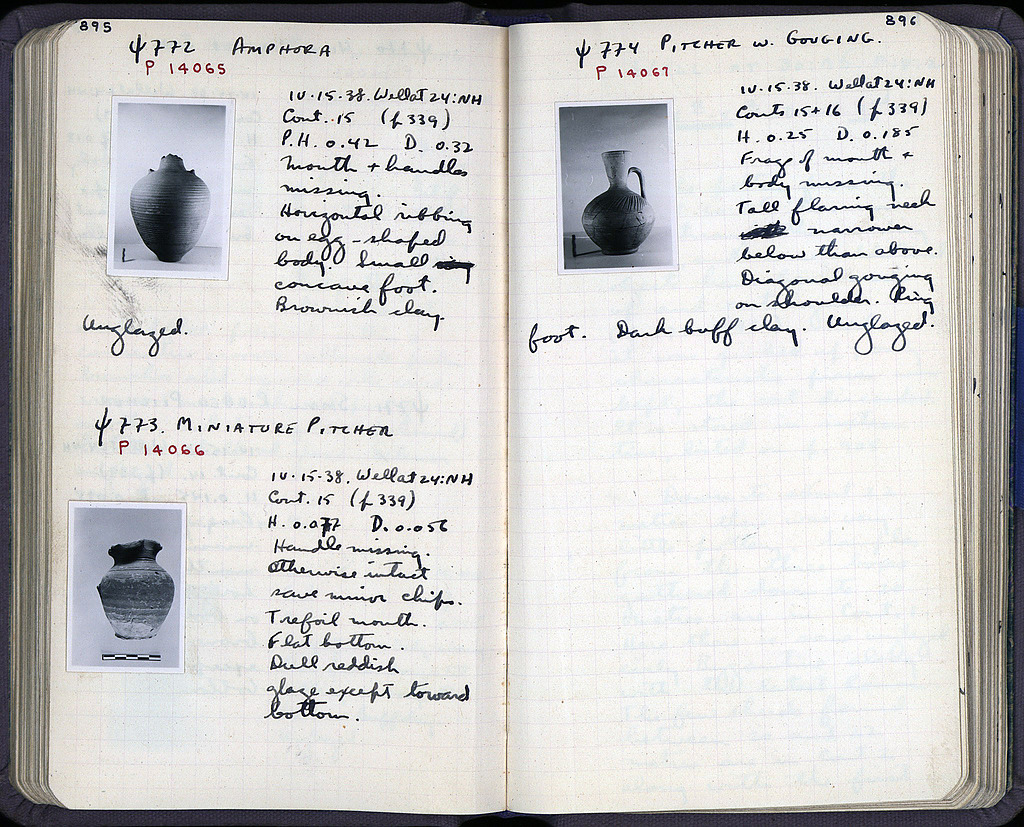 895
Ψ 772 AMPHORA
P 14065
IV-15-38. Well at 24:NH
Cont. 15 (p 339)
P.H. 0.42 D. 0.32
Mouth + handles
missing.
Horizontal ribbing
on egg-shaped
body. Small
concave foot.
Brownish clay.
Unglazed.
Ψ 773. MINIATURE PITCHER
P 14066
IV-15-38. Well at 24:NH
Cont. 15 (p 339)
H. 0.077 D. 0.056
Handle missing.
Otherwise intact
save minor chips.
Trefoil mouth.
Flat bottom.
Dull reddish
glaze except toward
bottom.
896
Ψ 774 PITCHER W. GOUGING.
P 14067
IV-15-38. Well at 24:NH
Conts 15+16 (p 339)
H. 0.25 D. 0.185
Frags of mouth +
body missing.
Tall flaring neck
narrower
below than above.
Diagonal gouging
on shoulder. Ring
foot. Dark buff clay. Unglazed.